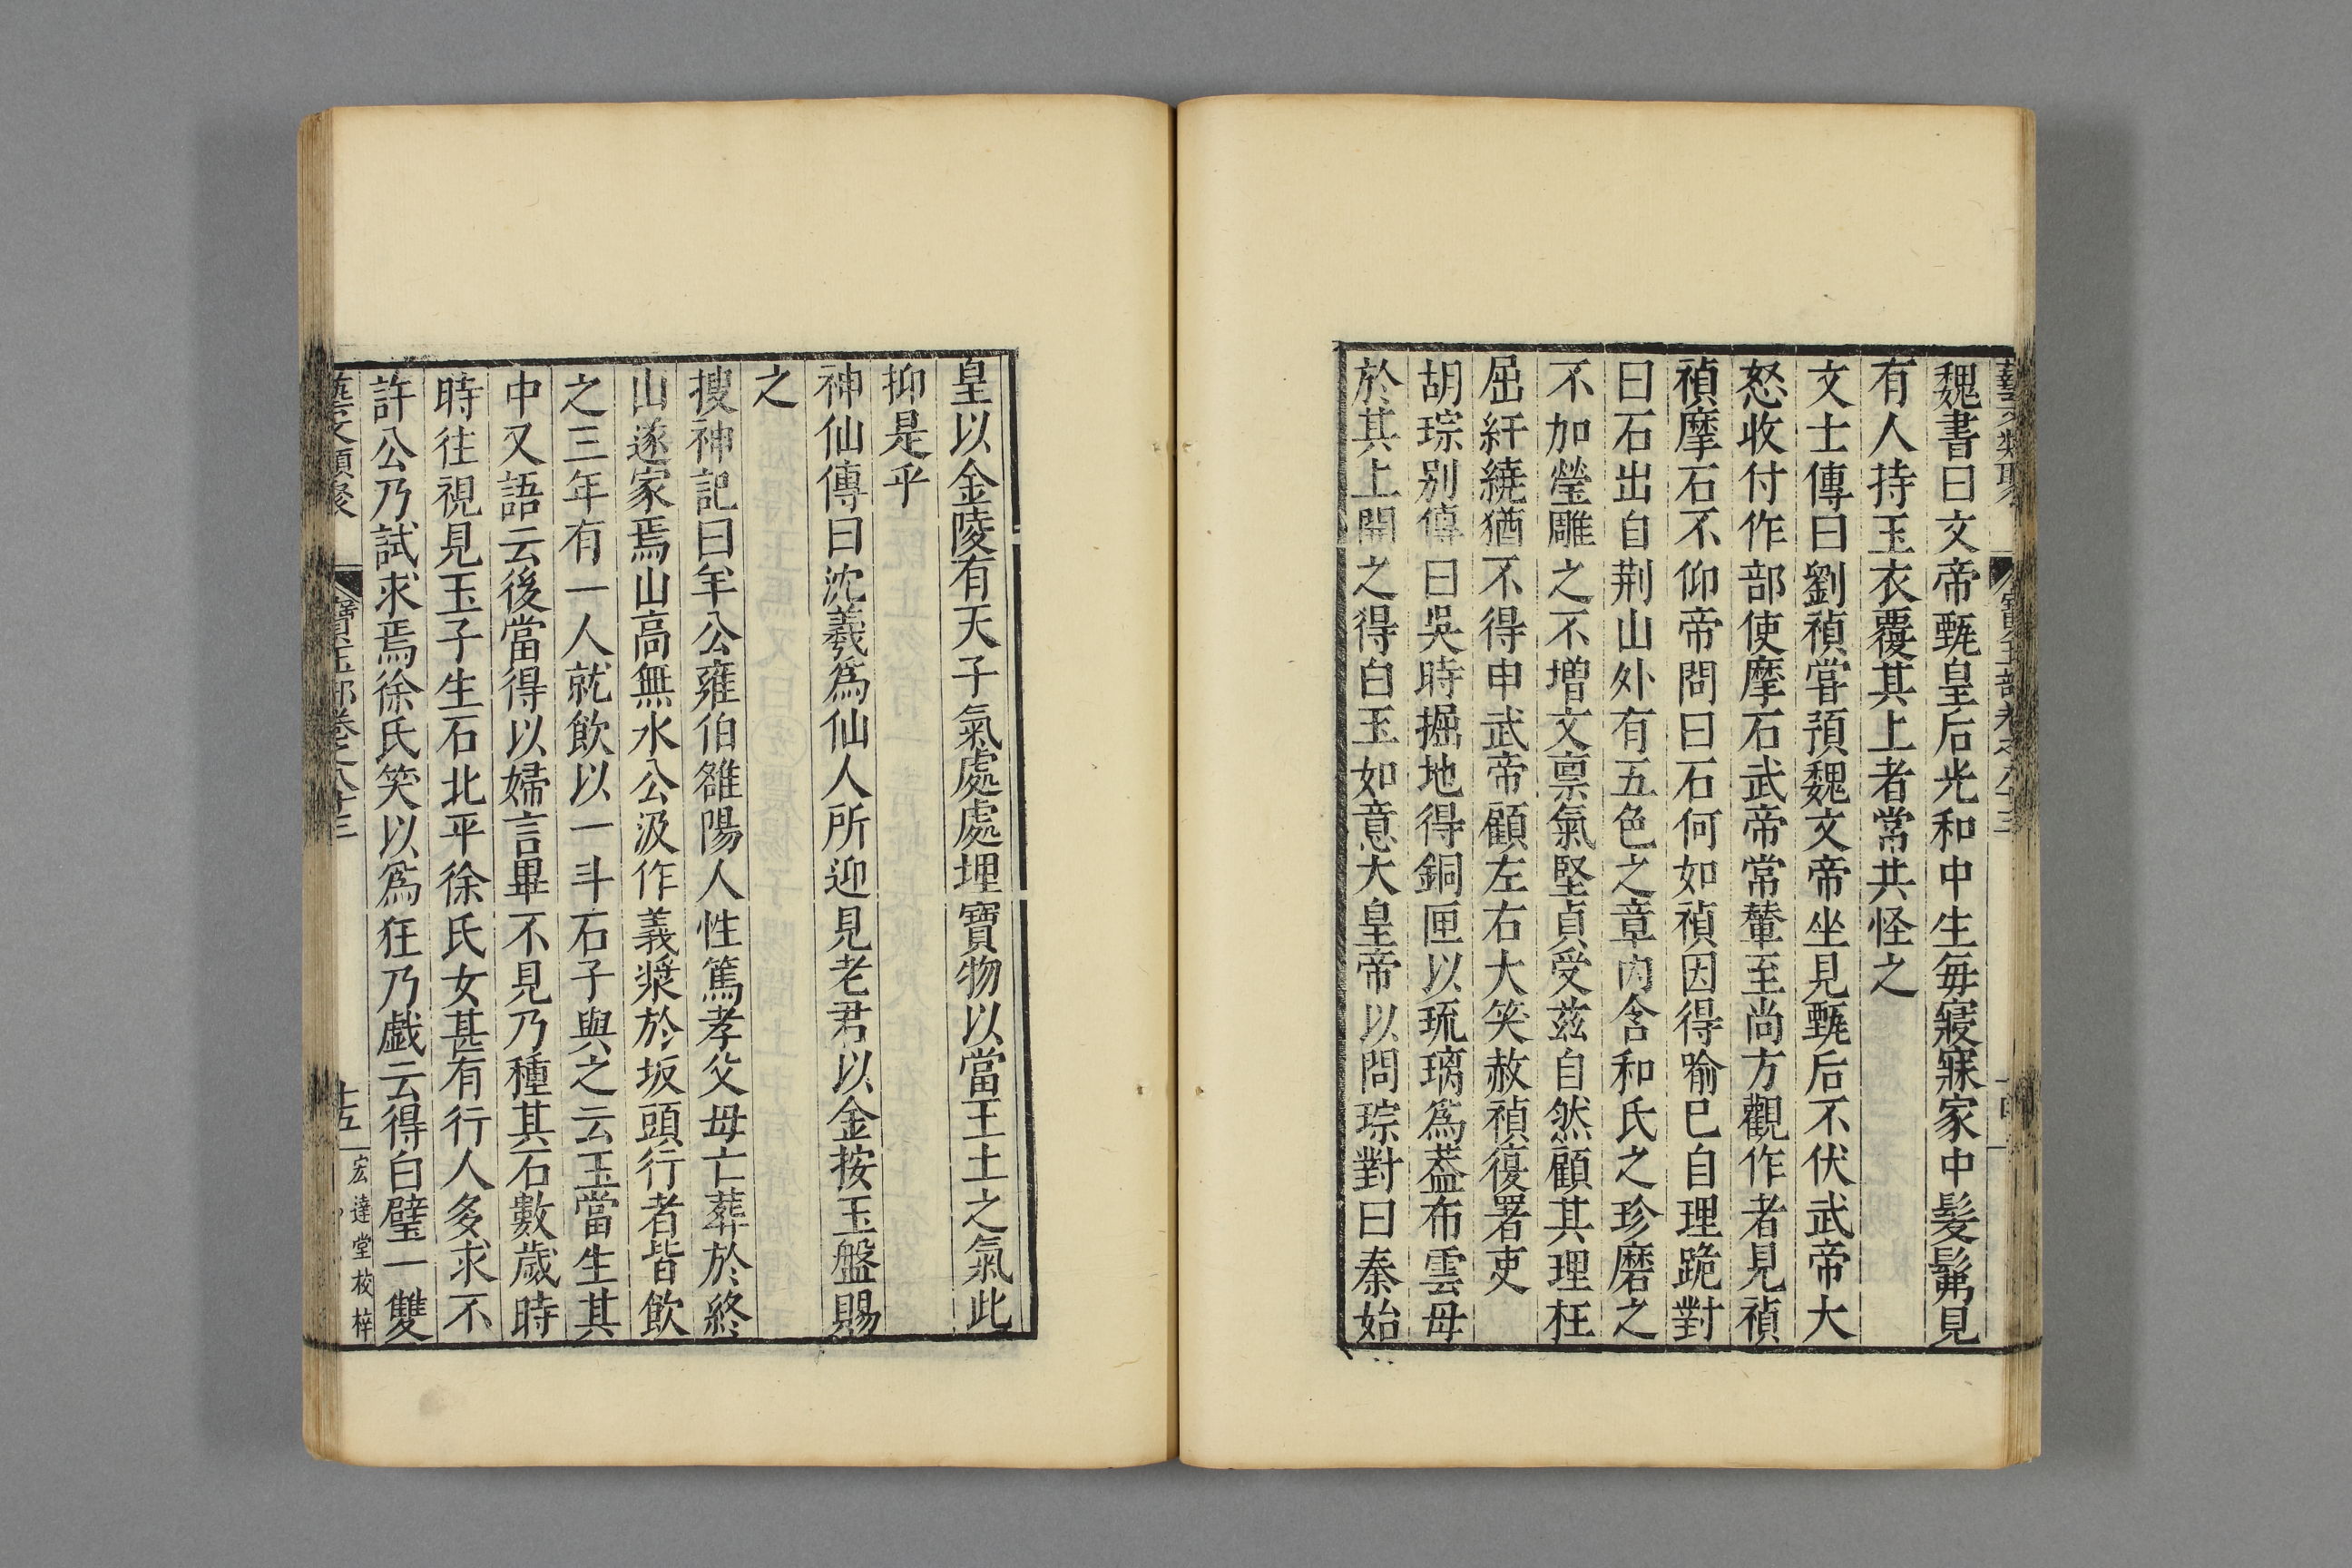 藝文類聚 寶玉部卷之八十三 十四
魏書曰文帝甄皇后光和中生每寢寐家中髣髴見
有人持玉衣覆其上者常共怪之
文士傳曰劉禎嘗預魏文帝坐見甄后不伏武帝大
怒收付作部使摩石武帝常輦至尚方觀作者見禎
禎摩石不仰帝問曰石何如禎因得喻已自理跪對
曰石出自荆山外有五色之章內含和氏之珍磨之
不加瑩雕之不增文禀氣堅貞受茲自然顧其理枉
屈紆繞猶不得申武帝顧左右大笑赦禎復署吏
胡琮别傳曰吳時掘地得銅匣以琉璃爲葢布雲母
於其上開之得白玉如意大皇帝以問琮對曰秦始
皇以金陵有天子氣處處埋寶物以當王土之氣此
抑是乎
神仙傳曰沈羲爲仙人所迎見老君以金按玉盤賜
之
搜神記曰羊公雍伯雒陽人性篤孝父母亡葬於終
山遂家焉山高無水公汲作義漿於坂頭行者皆飲
之三年有一人就飲以一斗石子與之云玉當生其
中又語云後當得以婦言畢不見乃種其石數歲時
時往視見玉子生石北平徐氏女甚有行人多求不
許公乃試求焉徐氏笑以爲狂乃戲云得白璧一雙
藝文類聚 寶玉部卷之八十三 十五 宏達堂校梓